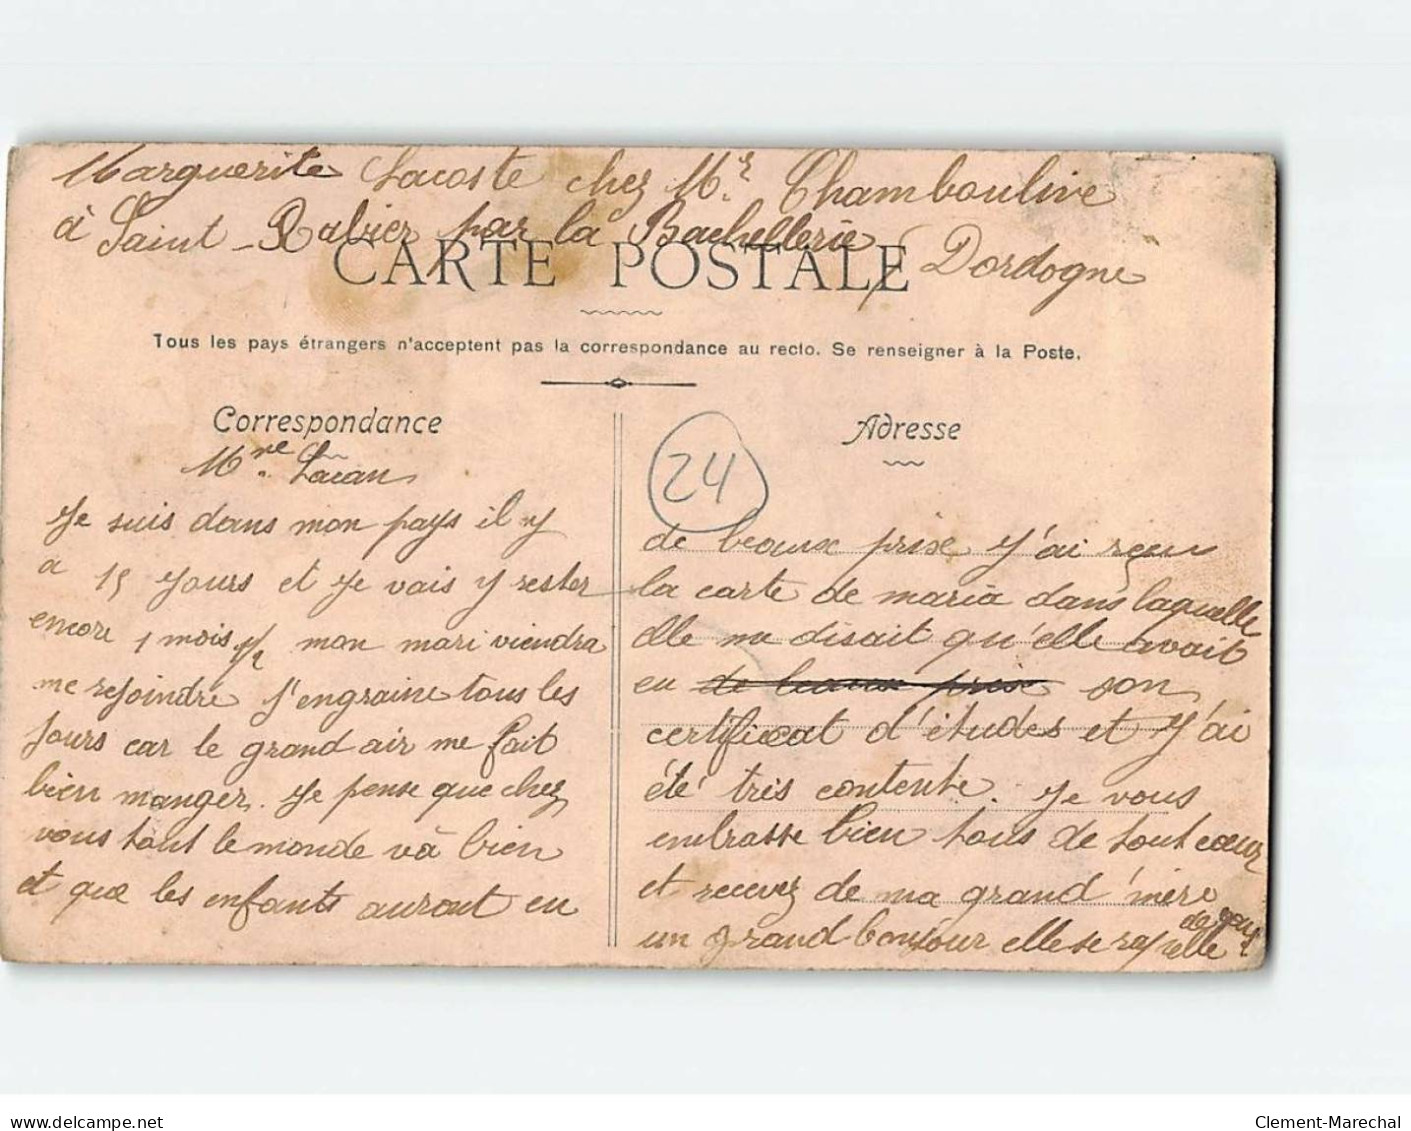 Marguerite Lacoste chez Mr. Chamboulive
à Saint-Rabier par la Bachellerie
Dordogne
CARTE POSTALE
Tous les pays étrangers n'acceptent pas la correspondance au recto. Se renseigner à la Poste.
Correspondance
Mme Lacan
Je suis dans mon pays il y
a 15 jours et je vais y rester
encore 1 mois 1/2 mon mari viendra
me rejoindre j'engraine tous les
jours car le grand air me fait
bien manger. Je pense que chez
vous tout le monde và bien
et que les enfants auront eu
Adresse
24
de beaux prix j'ai reçu
la carte de maria dans laquelle
elle me disait qu'elle avait
eu de beaux prix son
certificat d'études et j'ai
été très contente. Je vous
embrasse bien tous de tout cœur
et recevez de ma grand'mère
un grand bonjour elle se rapelle
de vous
delcampe.net
Clement-Marechal